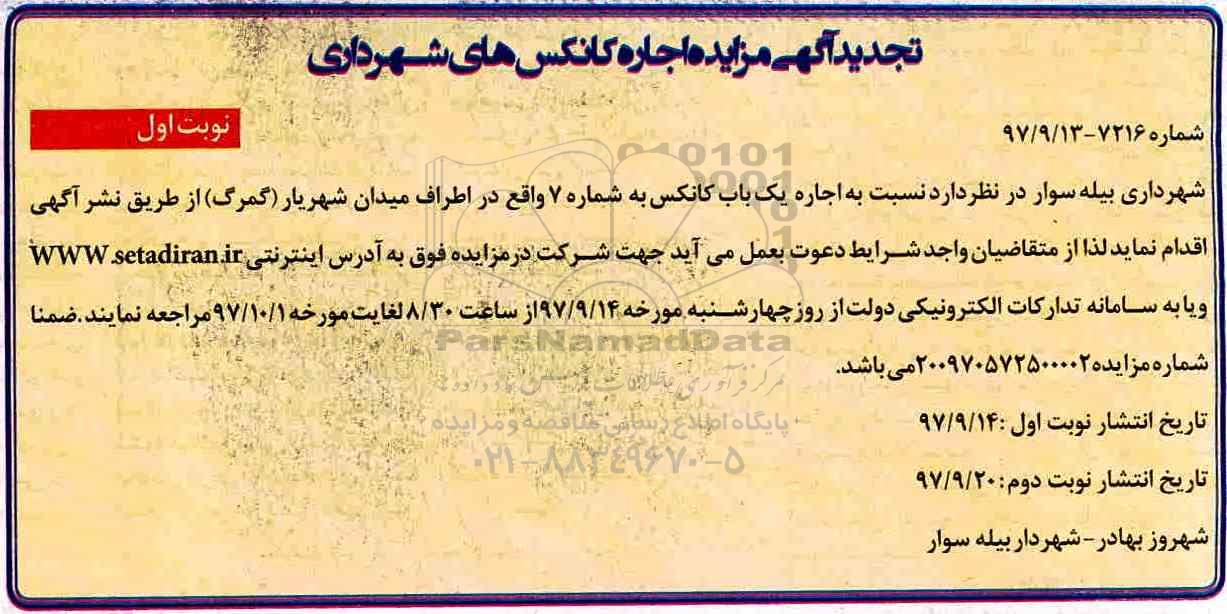 تجدید آگهی مزایده اجاره کانکس های شهرداری
نوبت اول
شماره ۷۲۱۶-۹۷/۹/۱۳
شهرداری بیله سوار در نظر دارد نسبت به اجاره یک باب کانکس به شماره ۷ واقع در اطراف میدان شهریار (گمرگ) از طریق نشر آگهی
اقدام نماید لذا از متقاضیان واجد شرایط دعوت بعمل می آید جهت شرکت در مزایده فوق به آدرس اینترنتی WWW.setadiran.ir
و یا به سامانه تدارکات الکترونیکی دولت از روز چهارشنبه مورخه ۹۷/۹/۱۴ از ساعت ۸/۳۰ لغایت مورخه ۹۷/۱۰/۱ مراجعه نمایند. ضمنا
شماره مزایده ۲۰۰۹۷۰۵۷۲۵۰۰۰۰۰۲ می باشد.
تاریخ انتشار نوبت اول :۹۷/۹/۱۴
تاریخ انتشار نوبت دوم: ۹۷/۹/۲۰
شهروز بهادر - شهردار بیله سوار
ParsNamadData
پایگاه اطلاع رسانی مناقصه و مزایده
۰۲۱-۸۸۳۴۹۶۷۰-۵